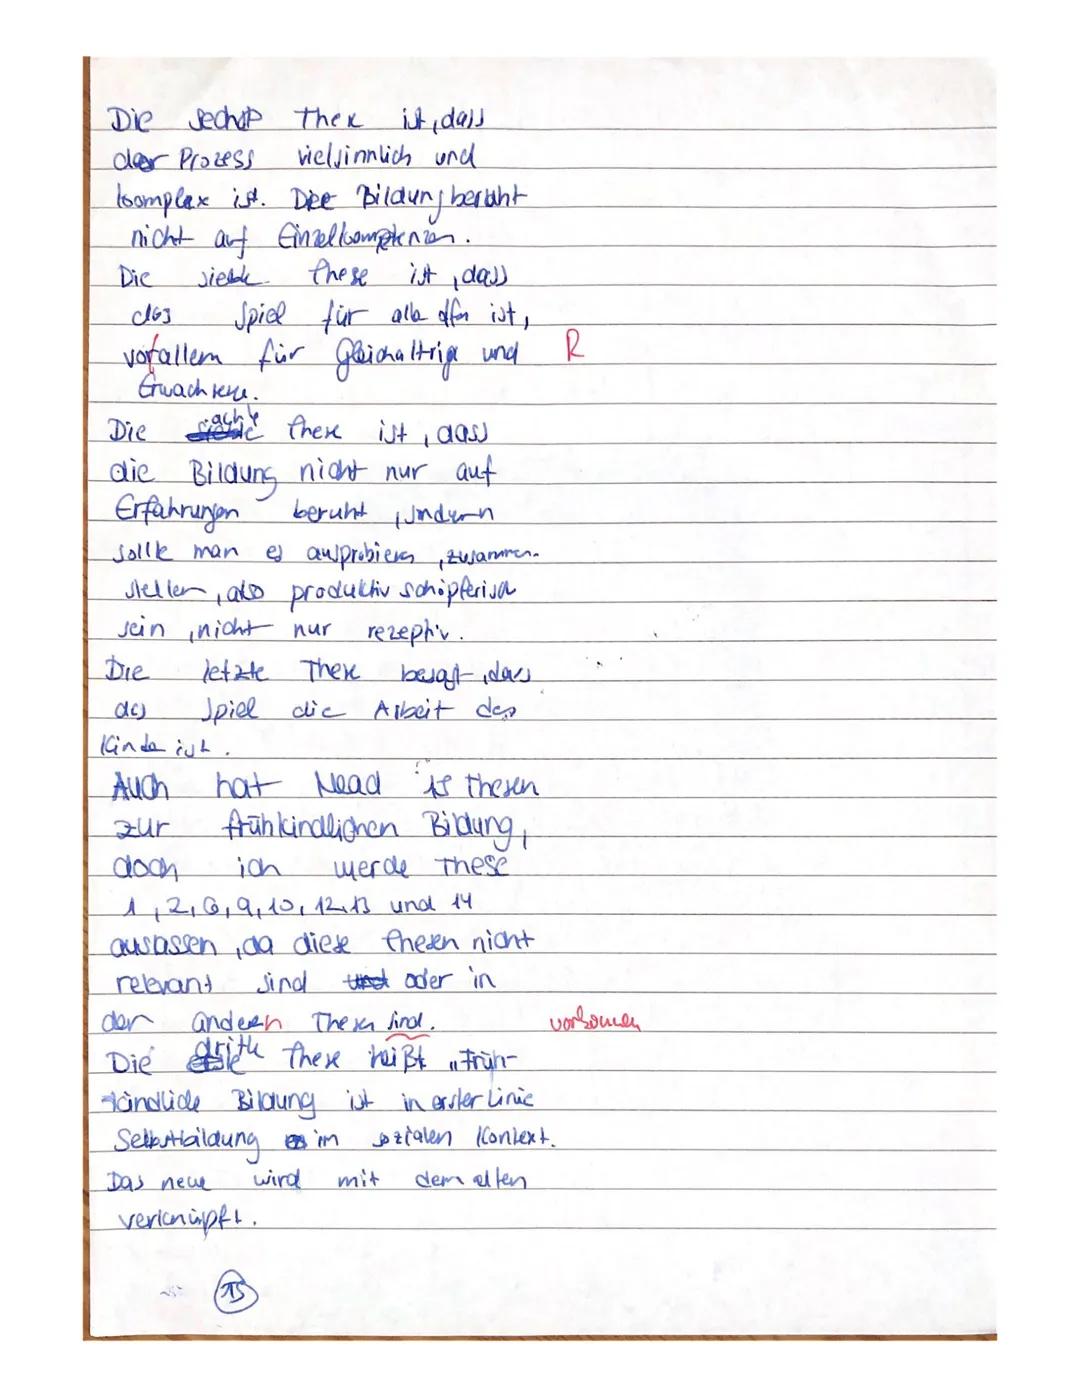 Die sechste These ist, dass
der Prozess vielsinnlich und
komplex ist. Die Bildung beruht
nicht auf Einzelkompetenzen.
Die siebte these ist, dass
das Spiel für alle offen ist,
vorallem für Gleichaltrige und R
Erwachsene.
Die achte these ist, dass
die Bildung nicht nur auf
Erfahrungen beruht, sondern
sollte man es ausprobieren, zusammen-
stellen, also produktiv schöpferisch
sein, nicht nur rezeptiv.
Die letzte These besagt, dass
das Spiel die Arbeit des
Kindes ist.
Auch hat Nead 15 thesen
zur frühkindlichen Bildung,
doch ich werde These
1, 2, 6, 9, 10, 12, 13 und 14
auslassen, da diese thesen nicht
relevant sind oder in
den anderen Thesen sind. vorkommen
Die dritte these heißt „Früh-
kindliche Bildung ist in erster Linie
Selbstbildung im sozialen Kontext.
Das neue wird mit dem alten
verknüpft.
15